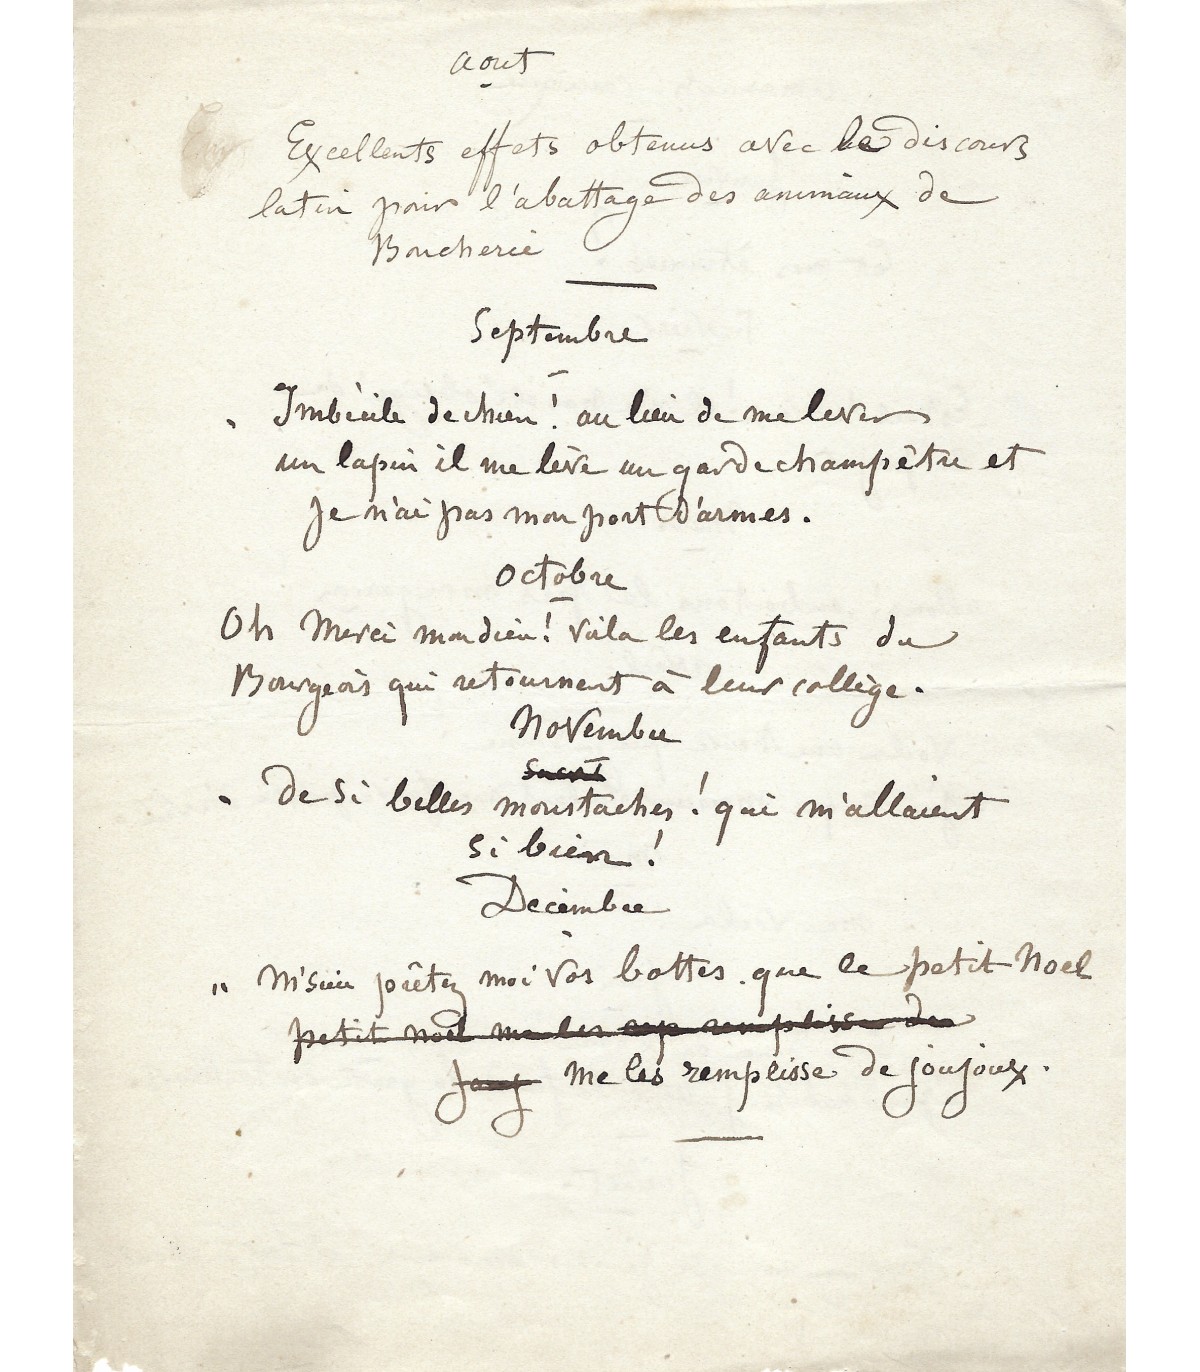 aout
Excellents effets obtenus avec le discours
latin pour l'abattage des animaux de
Boucherie
Septembre
Imbécile de chien! au lieu de me lever
un lapin il me lève un garde champêtre et
je n'ai pas mon port d'armes.
Octobre
Oh Merci mon dieu! voila les enfants du
Bourgeois qui retournent à leur collège.
Novembre
De si belles moustaches! qui m'allaient
si bien!
Decembre
" M'sieu prêtez moi vos bottes. que le petit Noel
petit noël me les remplisse de
me les remplisse de joujoux.